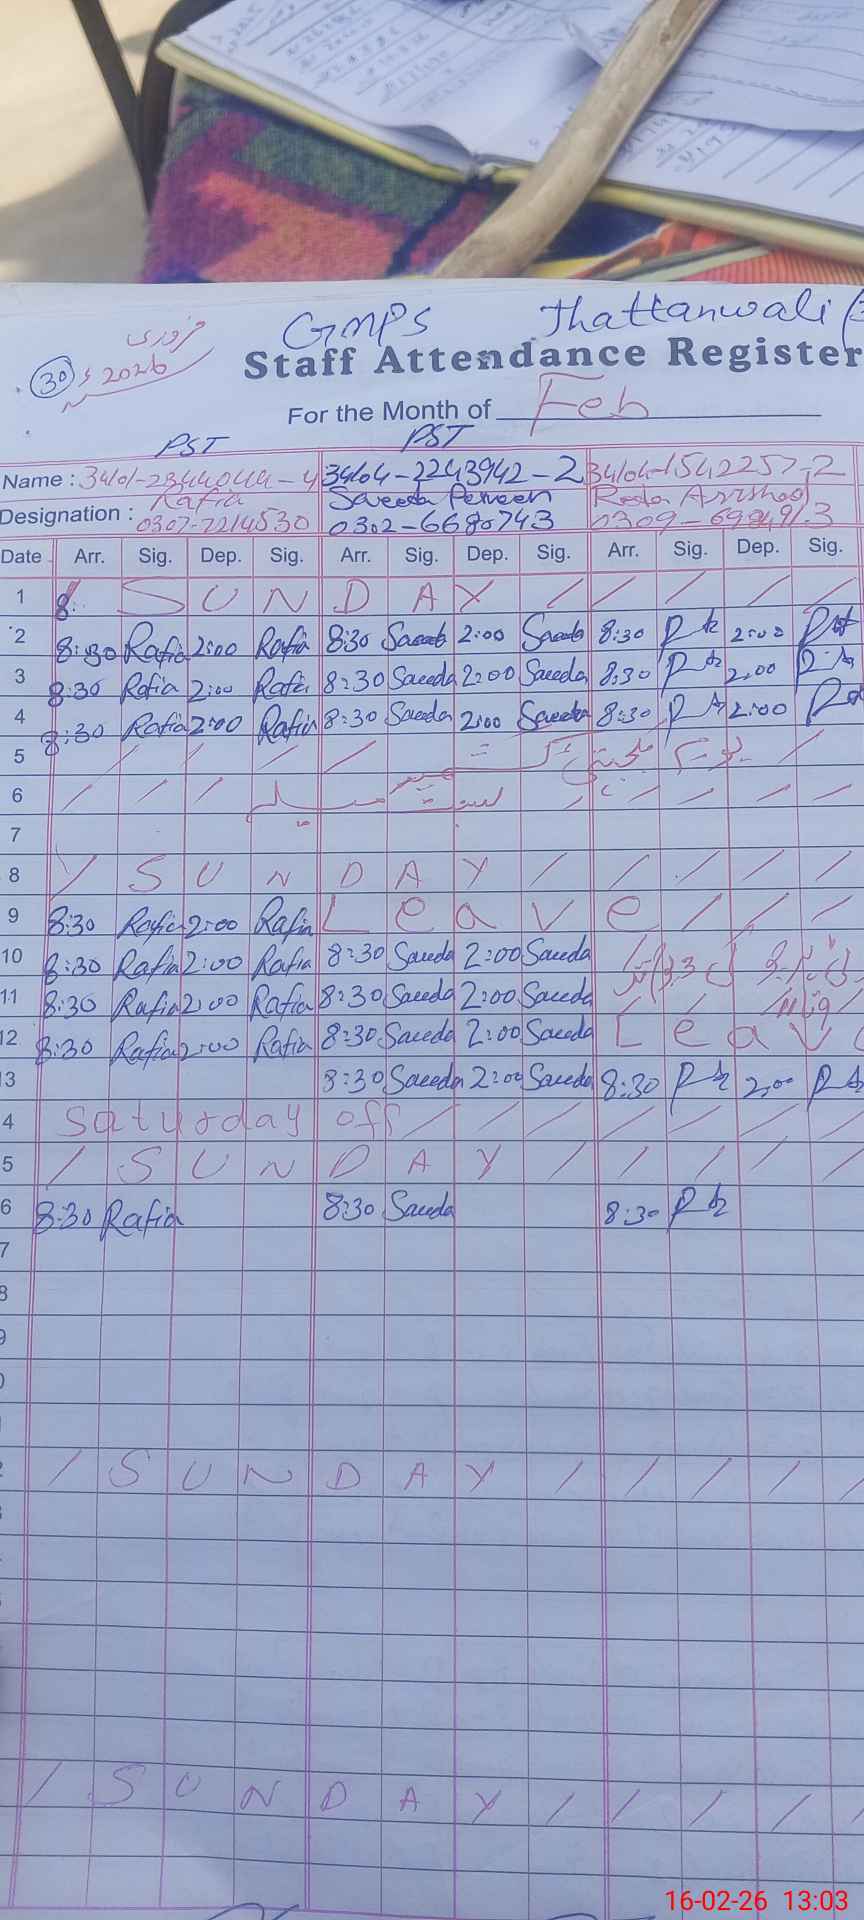 GMPS Thattanwali
فروری
30 2026 ء
Staff Attendance Register
For the Month of Feb
PST PST
Name : 34101-2344044-4 34104-2243942-2 34104-1542257-2
Rafia Saeeda Perveen
Designation : 0307-7214530 0302-6680743 0309-6984913
Date Arr. Sig. Dep. Sig. Arr. Sig. Dep. Sig. Arr. Sig. Dep. Sig.
1 8: S U N D A Y / / / / /
2 8:30 Rafia 2:00 Rafia 8:30 Saeeda 2:00 Saeeda 8:30 2:00
3 8:30 Rafia 2:00 Rafia 8:30 Saeeda 2:00 Saeeda 8:30 2:00
4 8:30 Rafia 2:00 Rafia 8:30 Saeeda 2:00 Saeeda 8:30 2:00
5 / / / / یوم یکجہتی کشمیر /
6 / / / بسنت میلہ / / / / /
7
8 / S U N D A Y / / / / /
9 8:30 Rafia 2:00 Rafia L e a v e / / /
10 8:30 Rafia 2:00 Rafia 8:30 Saeeda 2:00 Saeeda
11 8:30 Rafia 2:00 Rafia 8:30 Saeeda 2:00 Saeeda
12 8:30 Rafia 2:00 Rafia 8:30 Saeeda 2:00 Saeeda L e a v
3 8:30 Saeeda 2:00 Saeeda 8:30 2:00
4 Saturday off / / / / / / /
5 / S U N D A Y / / / / /
6 8:30 Rafia 8:30 Saeeda 8:30
7
8
9
/ S U N D A Y / / / / /
/ S U N D A Y / / / / /
16-02-26 13:03